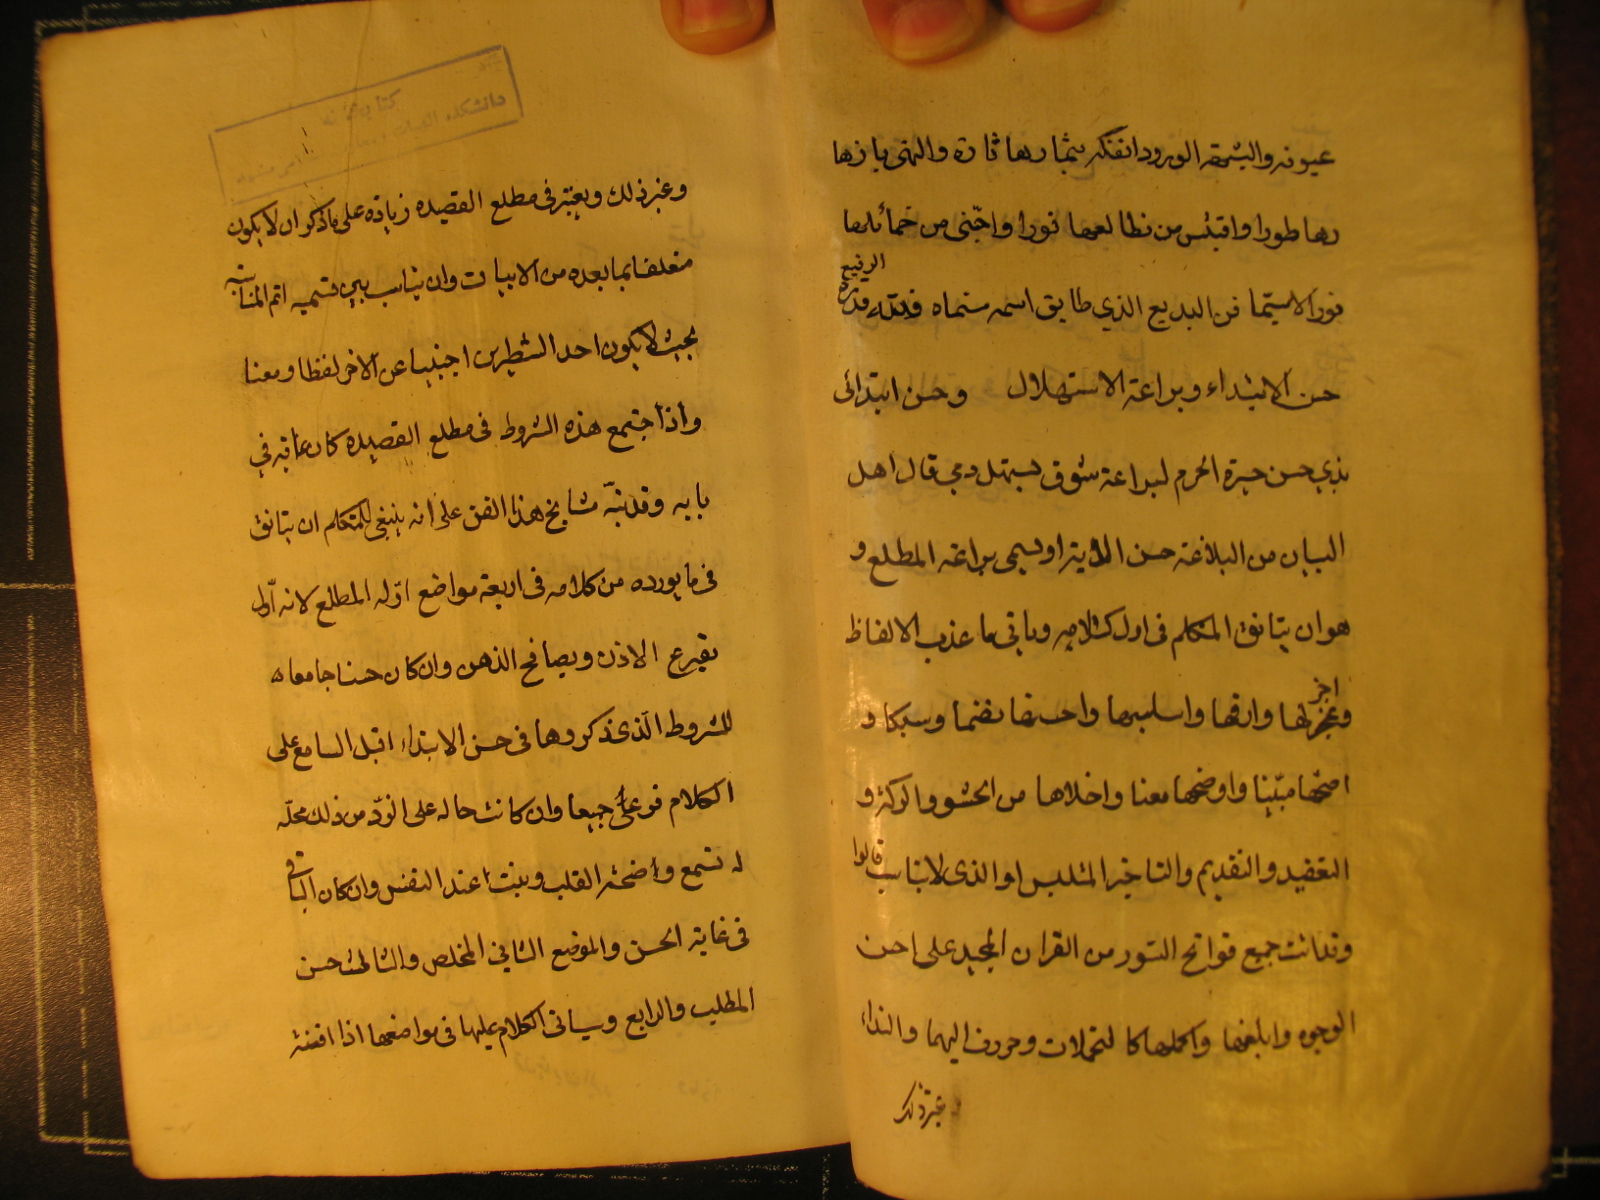 عيونه واليتمقه الورود اتفكه بثمارها تارة والتهى بازها
رها طورا واقتبس من نطالعها نورا واجتنى من خمائلها
نورا لاسيما فن البديع الذي طابق اسمه مسماه فلله قدره
الرفيع
حسن الابتداء وبراعة الاستهلال وحسن ابتدائى
بذي حسن جيرة الحرم لبراعة شوق يستهل دمى قال اهل
البيان من البلاغة حسن الابتدا ويسمى براعة المطلع و
هو ان يتانق المتكلم فى اول كلامه وياتى باعذب الالفاظ
واجزلها وارقها واسلسها واحسنها نضما وسبكا و
اصحها مبنيا واوضحها معنا واخلاها من الحشو والركة و
التعقيد والتقديم والتاخير الملبس او الذى لايناسب قالوا
وقد اتت جميع فواتح السور من القران المجيد على احسن
الوجوه وابلغها واكملها كالتحميدات وحروف الهجا والنداء
غير ذلك
وغير ذلك ويعتبر فى مطلع القصيده زيادة على ماذكر ان لايكون
متعلقا بما بعده من الابيات وان يناسب بين قسميه اتم المناسبة
بحيث لايكون احد الشطرين اجنبيا عن الاخر لفظا ومعنا
واذا اجتمع هذه الشروط فى مطلع القصيده كان غاية في
بابه وقد نبّه مشايخ هذا الفن على انه ينبغى للمتكلم ان يتانق
فى ما يورده من كلامه فى اربعة مواضع اوّله المطلع لانه اوّل
يقرع الاذن ويصافح الذهن وان كان حسنا جامعا
للشروط الّذى ذكروها فى حسن الابتداء اقبل السامع على
الكلام فوعى جميعا وان كانت حاله على الضدّ من ذلك مجّه
السمع واضحته القلب ونبت عند النفس وان كان الباقى
فى غاية الحسن والموضع الثاني المخلص والثالث حسن
المطلب والرابع وسياتى الكلام عليها فى مواضعها اذا اقتضت
كتابخانه
دانشكده الهيات